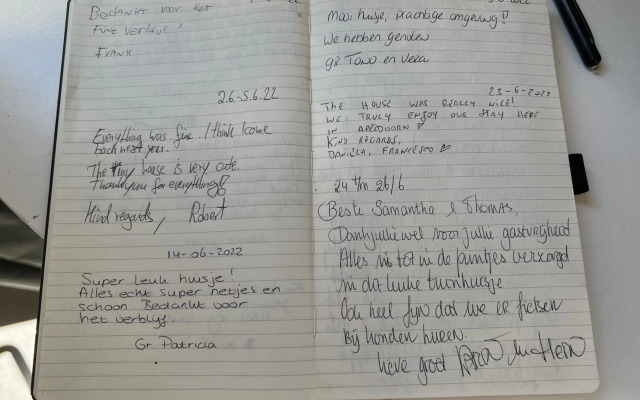 Bedankt voor het
fijne verblijf!
Frank
2.6-5.6.22
Everything was fine. I think I come
back next year.
The tiny house is very cute.
Thank you for everything!
Kind regards, Robert
14-06-2022
Super leuk huisje!
Alles echt super netjes en
schoon. Bedankt voor
het verblijf.
Gr. Patricia
Mooi huisje, prachtige omgeving!!
We hebben genoten
gr Tono en Vera
23-6-2022
THE HOUSE WAS REALLY NICE!
WE TRULY ENJOY OUR STAY HERE
IN APELDOORN ♡
KIND REGARDS,
DANIELA, FRANCESCO ♡
24 t/m 26/6
Beste Samantha & Thomas,
Dank jullie wel voor jullie gastvrijheid
Alles is tot in de puntjes verzorgd
in dit leuke tuinhuisje.
Ook heel fijn dat we er fietsen
bij konden huren.
lieve groet